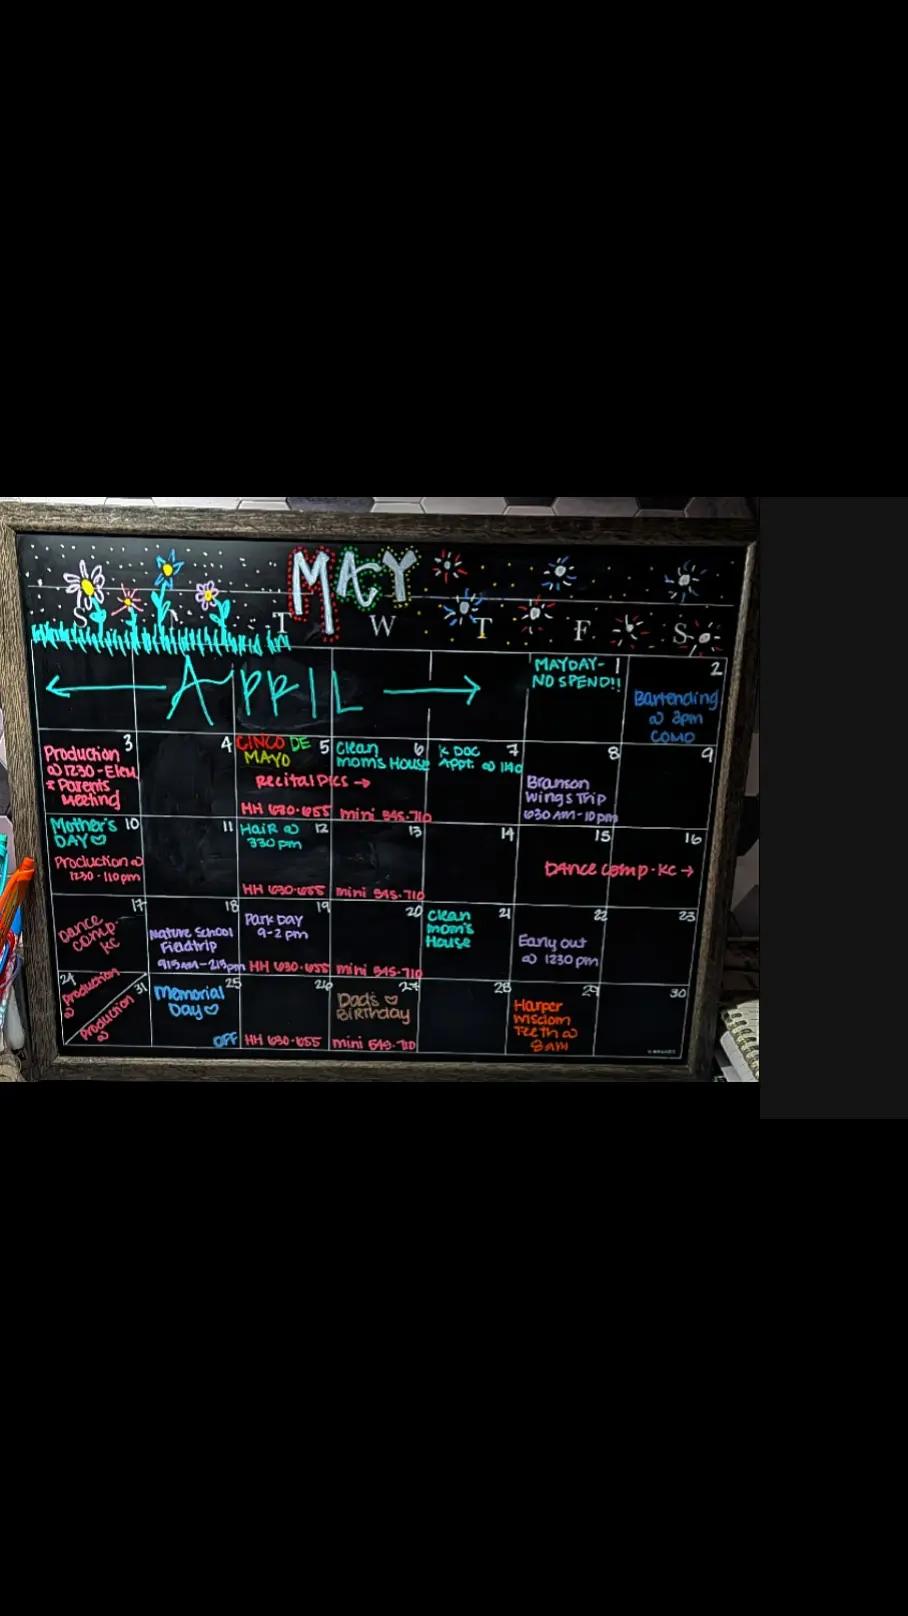 MAY
S
T
W
T
F
S
← APRIL →
1
MAYDAY-
NO SPEND!!
2
Bartending
@ 2pm
COMO
3
Production
@ 1230 - Elem
* Parents
Meeting
4
5
CINCO DE
MAYO
Recital Pics →
HH 630-655
6
Clean
mom's House
mini 545-710
7
K DOC
Appt. @ 1140
8
Branson
Wings Trip
630 AM - 10pm
9
10
Mother's
DAY ♡
Production @
1230 - 110pm
11
12
HaiR @
330 pm
HH 630-655
13
mini 545-710
14
15
DANCE COMP - KC →
16
17
Dance
comp-
KC
18
Nature School
Fieldtrip
915AM - 215pm
19
Park Day
9-2 pm
HH 630-655
20
mini 545-710
21
Clean
mom's
House
22
Early out
@ 1230 pm
23
24
Production
@
31
Production
@
25
Memorial
Day ♡
OFF
26
HH 630-655
27
Dad's ♡
BIRTHDAY
mini 545-710
28
29
Harper
wisdom
Teeth @
8AM
30